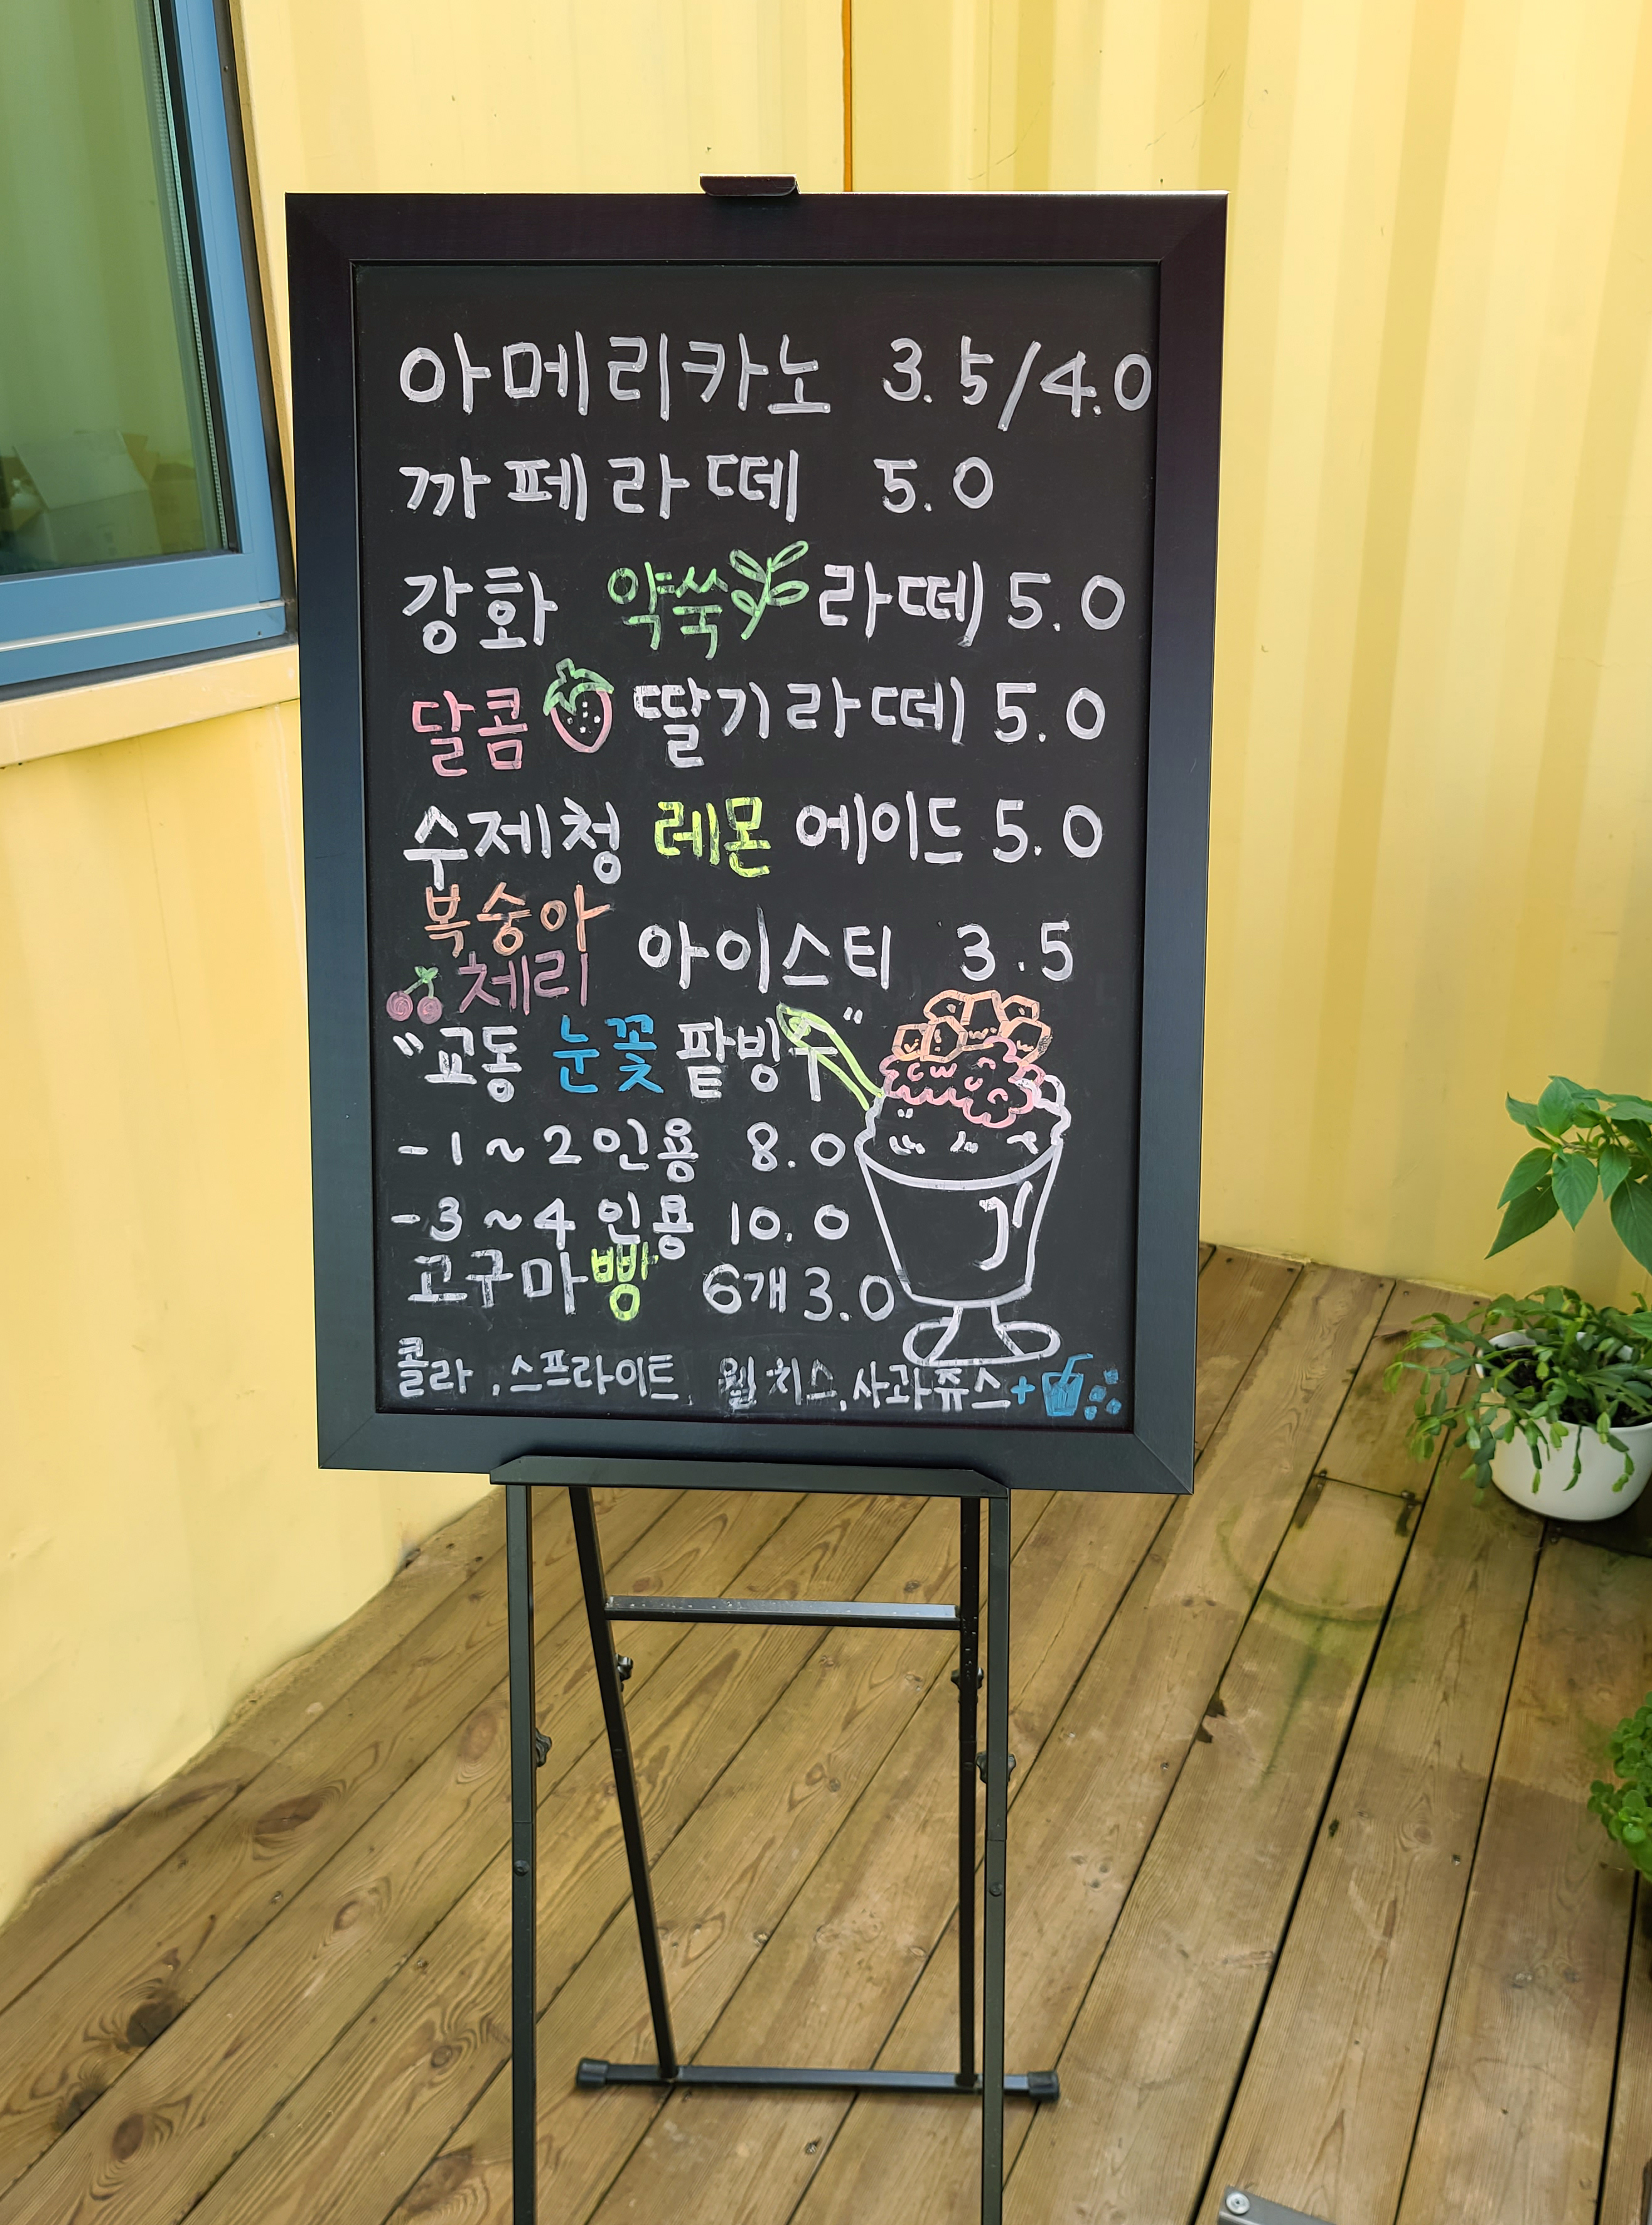 아메리카노 3.5/4.0
까페라떼 5.0
강화 약쑥 라떼 5.0
달콤 딸기라떼 5.0
수제청 레몬 에이드 5.0
복숭아
체리 아이스티 3.5
"교동 눈꽃 팥빙수"
-1~2인용 8.0
-3~4인용 10.0
고구마빵 6개 3.0
콜라, 스프라이트 웰치스, 사과쥬스+